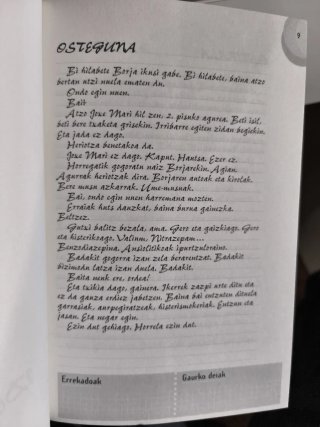 9
OSTEGUNA
Bi hilabete Borja ikusi gabe. Bi hilabete, baina atzo
bertan utzi nuela ematen du.
Ondo egin nuen.
Bai!
Atzo Joxe Mari hil zen, 2. pisuko agurea. Beti isil,
beti bere txaketa grisekin. Irribarre egiten zidan begiekin.
Eta jada ez dago.
Heriotza benetakoa da.
Joxe Mari ez dago. Kaput. Hautsa. Ezer ez.
Horregatik gogoratu naiz Borjarekin. Agian.
Agurrak heriotzak dira. Borjaren antoak eta kirolak.
Bere musu azkarrak. Ume-musuak.
Bai, ondo egin nuen harremana mozten.
Erraiak huts dauzkat, baina burua gainezka.
Beltzez.
Gutxi balitz bezala, ama. Gero eta gaizkiago. Gero
eta histerikoago. Valium, Nitrazepam...
Benzodiazepina. Ansiolitikoak ipurtzuloraino.
Badakit gogorra izan zela berarentzat. Badakit
bizimodu latza izan duela. Badakit.
Baita neuk ere, ordea!
Eta txikia dago, gainera. Ikerrek zazpi urte ditu eta
ez da ganza erdiez jabetzen. Baina bai entzuten dituela
garrasiak, aurpegiratzeak, histerismokeriak. Entzun eta
jasan. Eta negar egin.
Ezin dut gehiago. Horrela ezin dut.
Errekadoak
Gaurko deiak